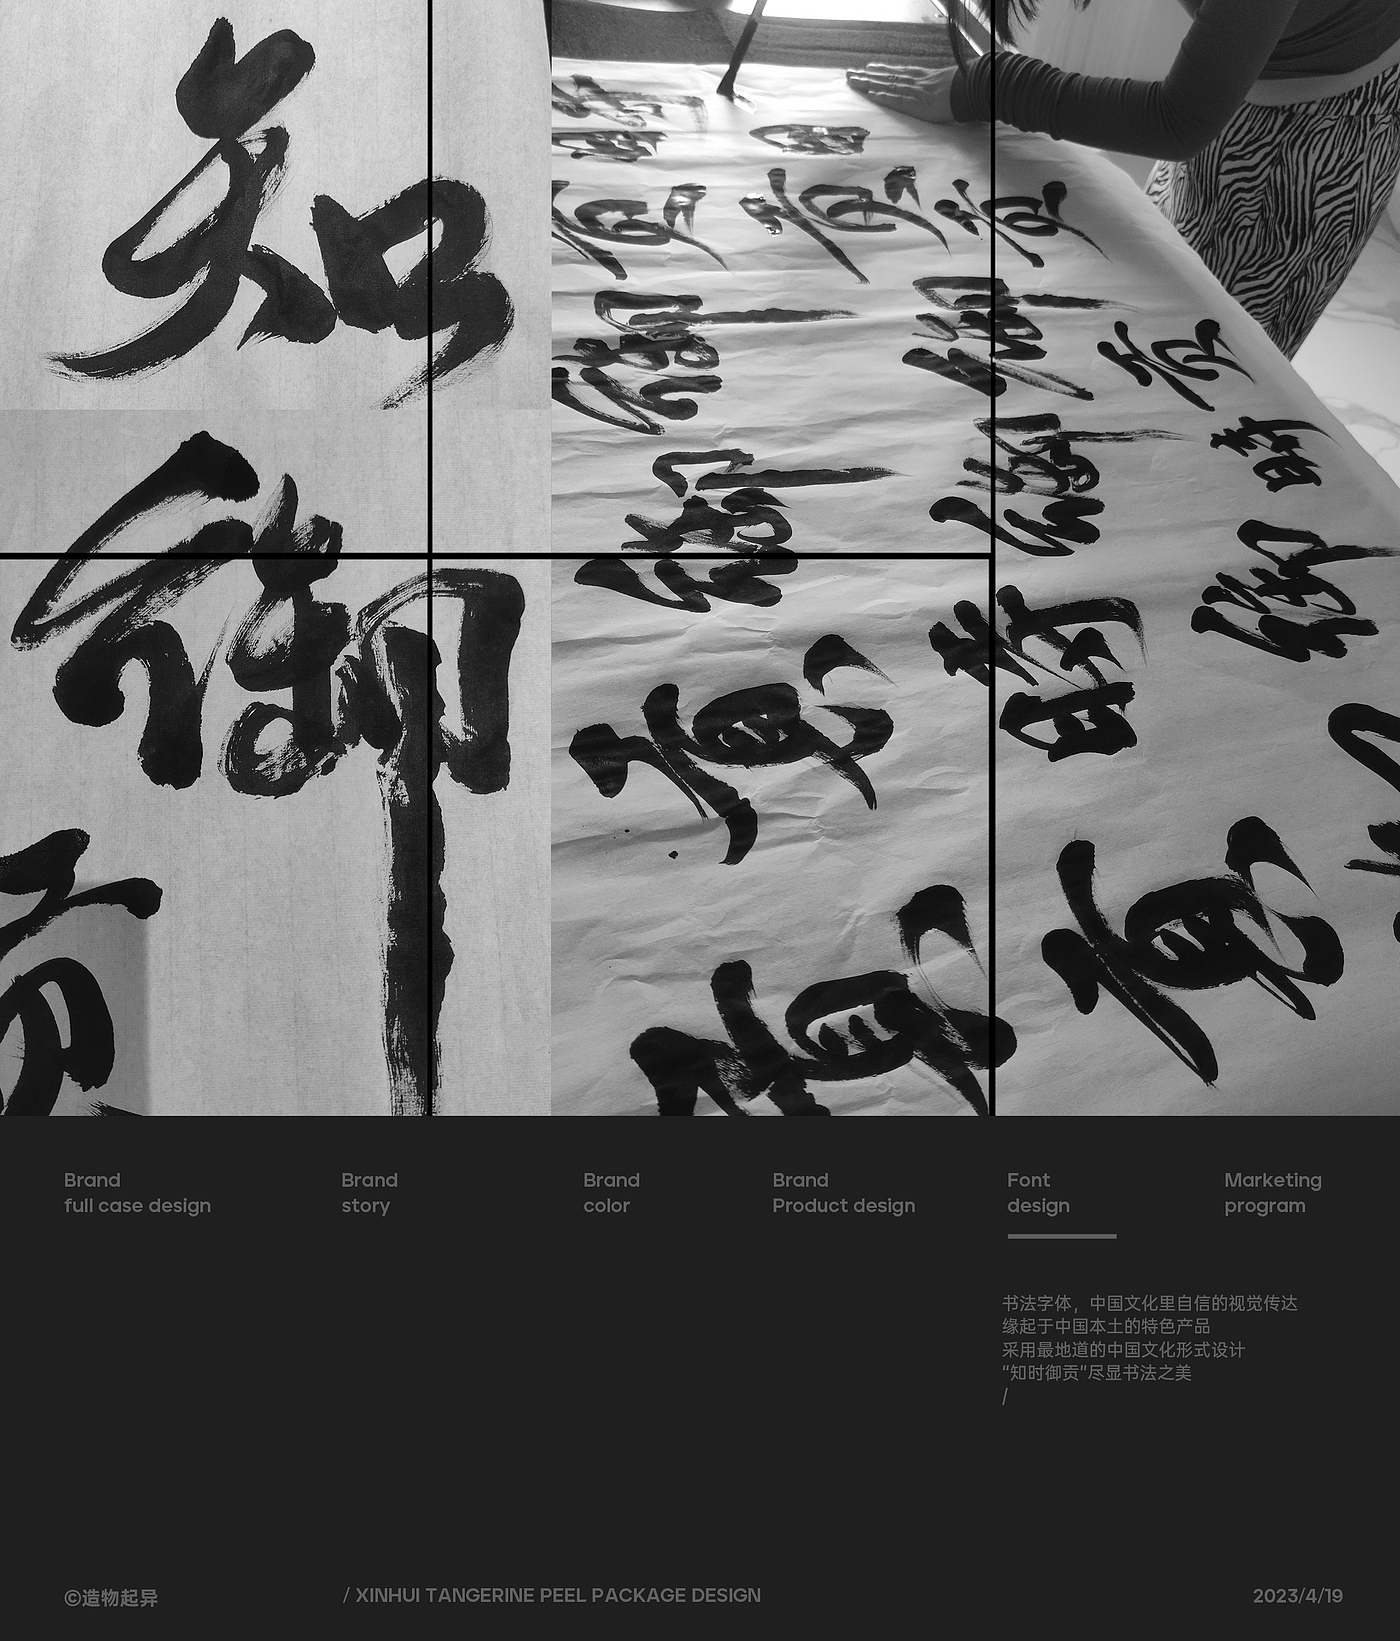 知
御
貢
Brand
full case design
Brand
story
Brand
color
Brand
Product design
Font
design
Marketing
program
书法字体，中国文化里自信的视觉传达
缘起于中国本土的特色产品
采用最地道的中国文化形式设计
“知时御贡”尽显书法之美
/
©造物起异
/ XINHUI TANGERINE PEEL PACKAGE DESIGN
2023/4/19